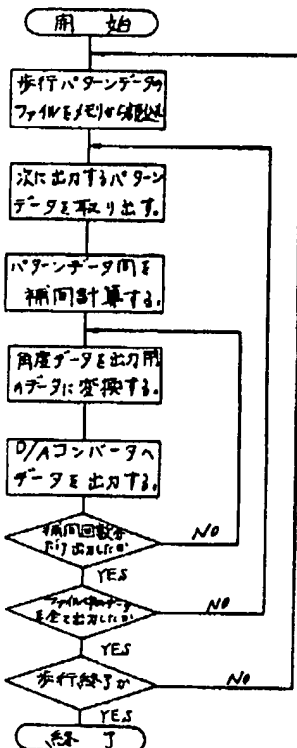 開 始
歩行パターンデータの
ファイルをメモリから読込む
次に出力するパターン
データを取り出す。
パターンデータ間を
補間計算する。
角度データを出力用
のデータに変換する。
D/Aコンバータへ
データを出力する。
補間回数分
だけ出力したか
NO
YES
ファイル中のデータ
を全て出力したか
NO
YES
歩行終了か
NO
YES
終 了